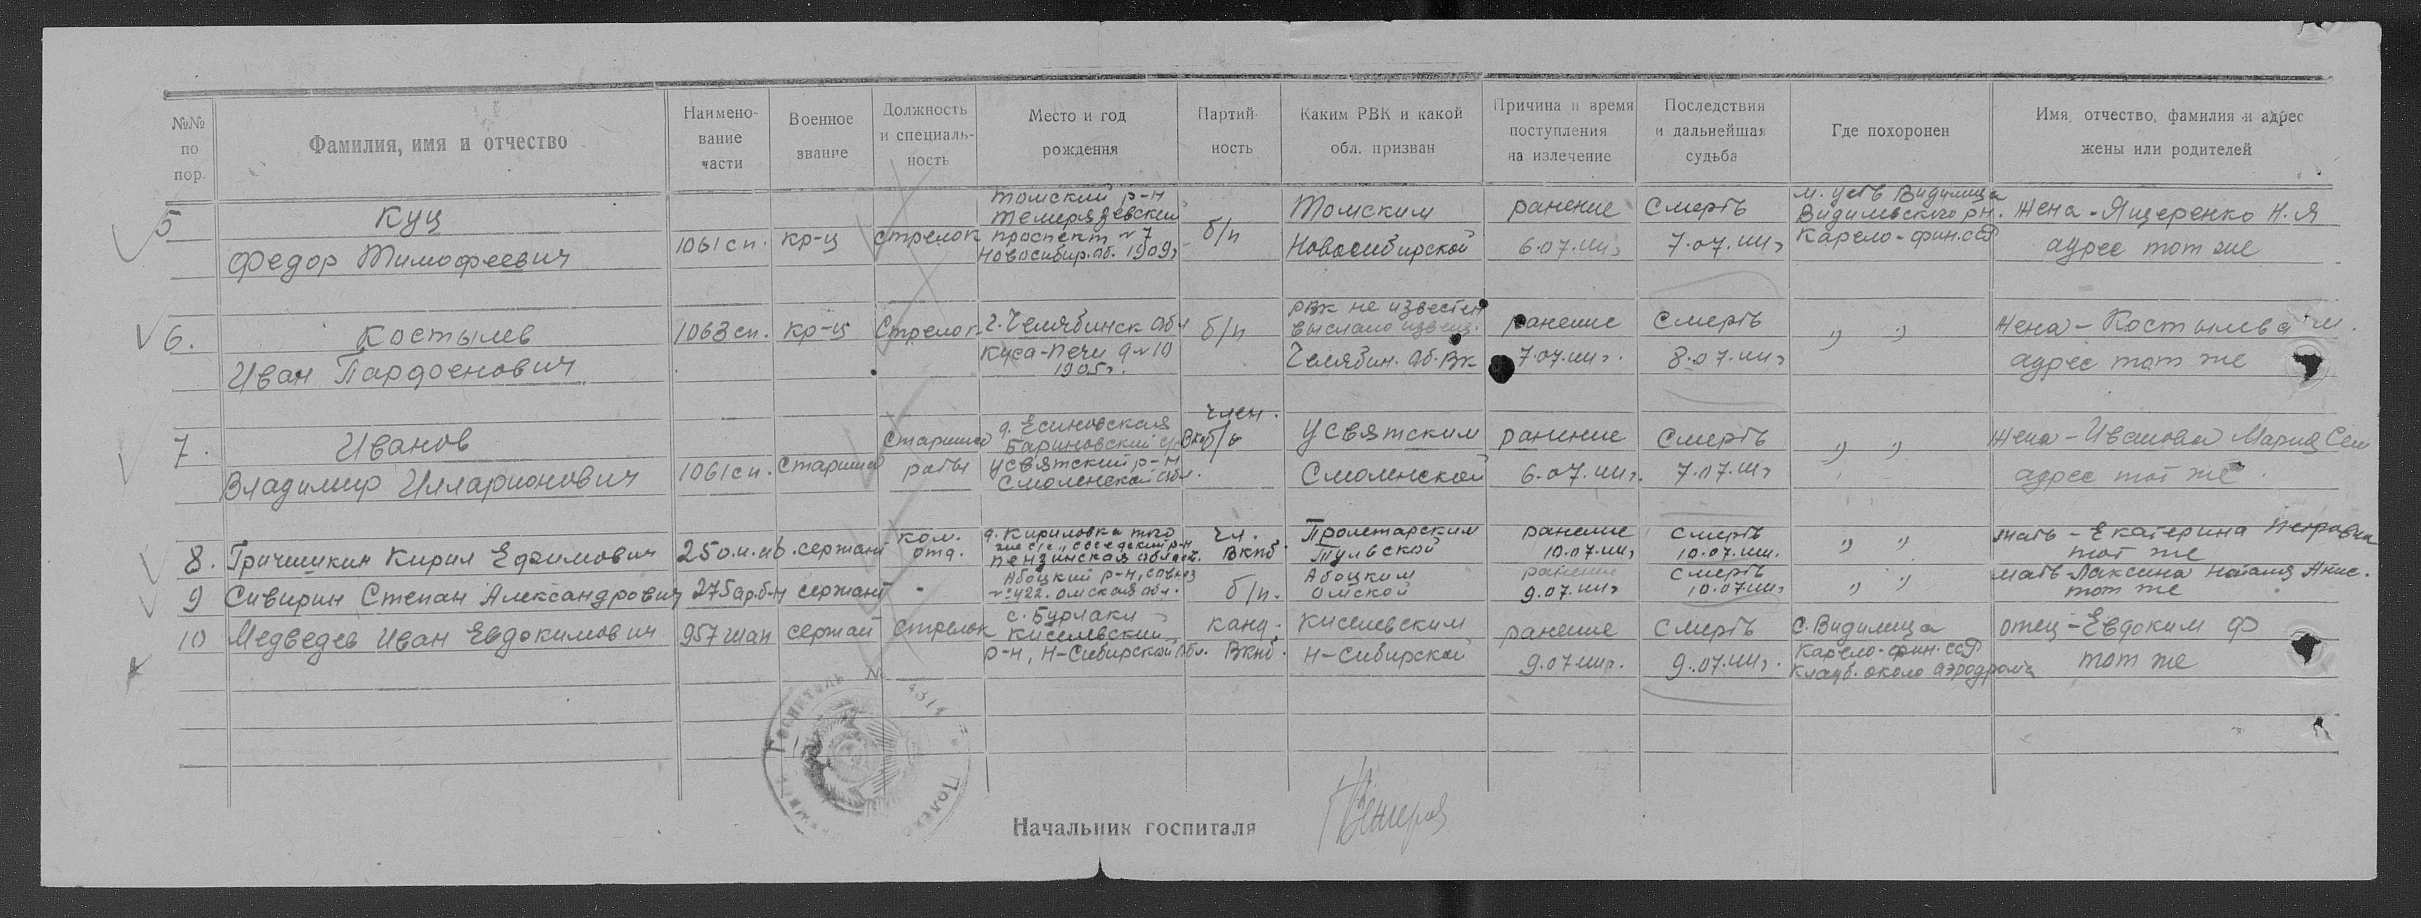 №№ по пор.
Фамилия, имя и отчество
Наимено-
вание
части
Военное
звание
Должность
и специаль-
ность
Место и год
рождения
Партий-
ность
Каким РВК и какой
обл. призван
Причина и время
поступления
на излечение
Последствия
и дальнейшая
судьба
Где похоронен
Имя, отчество, фамилия и адрес
жены или родителей
5
Куц
Федор Тимофеевич
1061 сп.
кр-ц
стрелок
Томский р-н
Темерязевский
проспект №7
Новосибир. об. 1909г
б/п
Томским
Новосибирской
ранение
6.07.44г
Смерть
7.07.44г
м. усть Видлица
Видлевского р-н.
Карело-фин. сср
жена - Ященко Н. Я
адрес тот же
6.
Костылев
Иван Парфенович
1063 сп.
кр-ц
Стрелок
г. Челябинск обл
Куса-Печи д №10
1905г.
б/п
РВК не известен
выслано извещ.
Челябин. об. Вк
ранение
7.07.44г.
Смерть
8.07.44г
„ „
жена - Костылева М.
адрес тот же
7.
Иванов
Владимир Илларионович
1061 сп.
Старшина
Старшина
роты
д. Есиновская
Бариновский с/с
Усвятский р-н
Смоленской обл.
член.
Вкпб/б
Усвятским
Смоленской
ранение
6.07.44г.
Смерть
7.07.44г
„ „
жена - Иванова Мария Сем
адрес тот же.
8.
Гричишкин Кирил Ефимович
25 о.и.пб.
сержант
ком.
отд.
д. Кириловка того
же с/с, соседский р-н
Пензинская област.
чл.
Вкпб
Пролетарским
Тульской
ранение
10.07.44г
Смерть
10.07.44г.
„ „
мать - Екатерина Петровна
тот же
9
Сивирин Степан Александрович
275 ар.б-н
сержант
-
Абоцкий р-н, совхоз
№ 422. Омская обл.
б/п.
Абоцким
Омской
ранение
9.07.44г
Смерть
10.07.44г
„ „
мать - Лаксина Наталия Анис.
тот же
10
Медведев Иван Евдокимович
957 шап
сержан
Стрелок
с. Бурлаки
Киселевский
р-н, Н-Сибирской обл.
канд.
Вкпб.
Киселевским
Н-Сибирской
ранение
9.07.44г.
Смерть
9.07.44г.
с. Видлица
Карело-фин. сср
Кладб. около аэродрома
отец - Евдоким Ф
тот же
Госпиталь № 4317
Начальник госпиталя